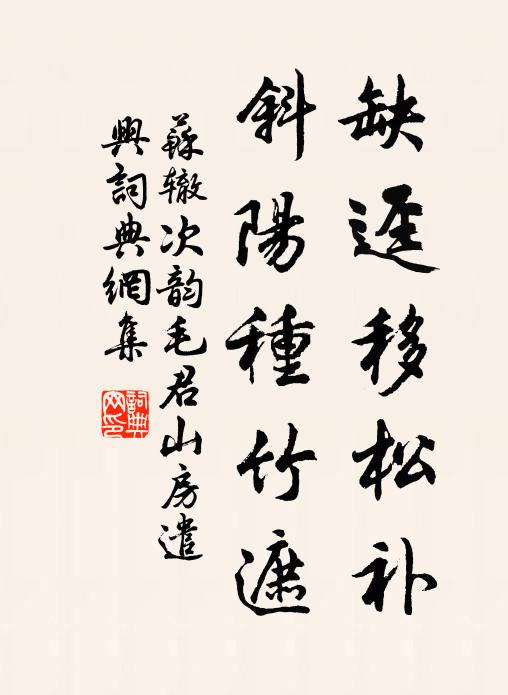 缺逕移松补
斜陽種竹遮
蘇辙次韵毛君山房遣
興詞典網集
詞典网印